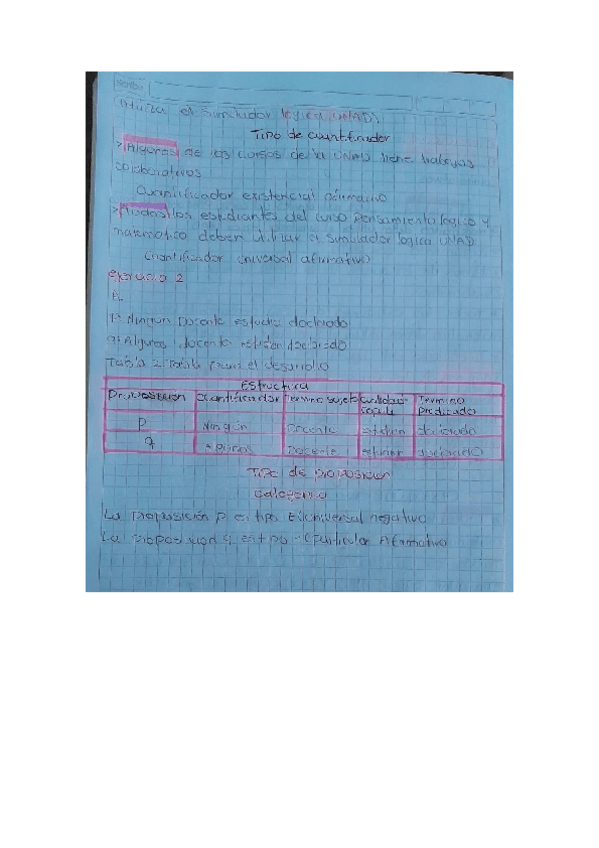 Utiliza el simulador lógica UNAD
Tipo de cuantificador
>Algunos de los cursos de la UNAD tiene trabajos
colaborativos
Cuantificador existencial afirmativo
> Todos los estudiantes del curso Pensamiento logico y
matematico deben utilizar el simulador logica UNAD
Cuantificador universal afirmativo
ejercicio 2
A.
P: Ningun Docente estudia doctorado
q: Algunos docente estudian doctorado
Tabla 2: Tabla para el desarrollo
Estructura
Proposicion cuantificador Termino sujeto Termino predicado
P Ningun Docente estudian doctorado
q Algunos Docente estudian doctorado
Tipo de proposicion
categorica
La proposición p es tipo E: Universal negativo
La proposicion q es tipo I Particular Afirmativo